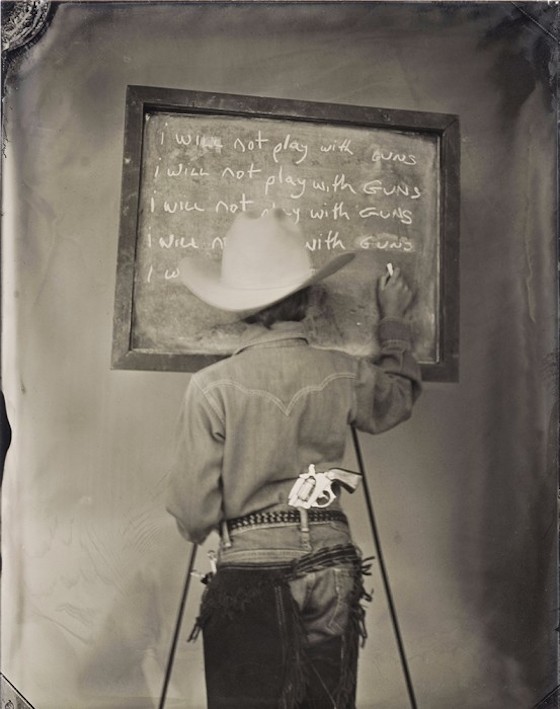 i will not play with GUNS
i will not play with GUNS
I will not play with GUNS
I will with GUNS
I w